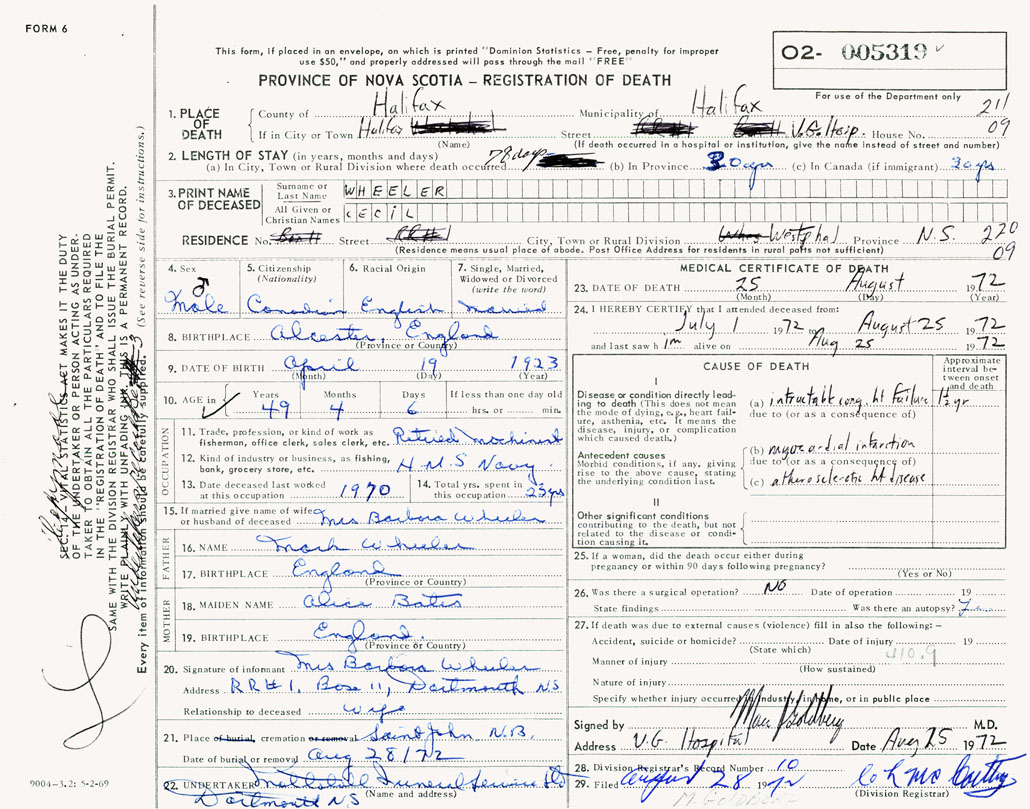 FORM 6
This form, if placed in an envelope, on which is printed "Dominion Statistics — Free, penalty for improper
use $50," and properly addressed will pass through the mail "FREE"
PROVINCE OF NOVA SCOTIA — REGISTRATION OF DEATH
O2- 005319
For use of the Department only
211
09
1. PLACE OF DEATH
County of Halifax Municipality of Halifax
If in City or Town Halifax Street V.G. Hosp. House No.
(Name) (If death occurred in a hospital or institution, give the name instead of street and number)
2. LENGTH OF STAY (in years, months and days)
(a) In City, Town or Rural Division where death occurred 78 days (b) In Province 30 yrs (c) In Canada (if immigrant) 30 yrs
3. PRINT NAME OF DECEASED
Surname or Last Name WHEELER
All Given or Christian Names CECIL
RESIDENCE No. Street City, Town or Rural Division Westphal Province N.S.
220
09
(Residence means usual place of abode. Post Office Address for residents in rural parts not sufficient)
4. Sex Male
5. Citizenship (Nationality) Canadian
6. Racial Origin English
7. Single, Married, Widowed or Divorced (write the word) Married
8. BIRTHPLACE Alcester, England
(Province or Country)
9. DATE OF BIRTH April 19 1923
(Month) (Day) (Year)
10. AGE in Years Months Days If less than one day old
49 4 6 hrs. or min.
OCCUPATION
11. Trade, profession, or kind of work as
fisherman, office clerk, sales clerk, etc. Retired machinist
12. Kind of industry or business, as fishing,
bank, grocery store, etc. H.M.S Navy.
13. Date deceased last worked
at this occupation 1970
14. Total yrs. spent in
this occupation 23 yrs
15. If married give name of wife
or husband of deceased Mrs Barbara Wheeler
FATHER
16. NAME Mark Wheeler
17. BIRTHPLACE England
(Province or Country)
MOTHER
18. MAIDEN NAME Alice Bates
19. BIRTHPLACE England.
(Province or Country)
20. Signature of informant Mrs Barbara Wheeler
Address RR#1, Box 11, Dartmouth NS
Relationship to deceased Wife
21. Place of burial, cremation or removal Saint John N.B.
Date of burial or removal Aug 28/72
22. UNDERTAKER Funeral Service Ltd
(Name and address)
Dartmouth NS
MEDICAL CERTIFICATE OF DEATH
23. DATE OF DEATH 25 August 1972
(Month) (Day) (Year)
24. I HEREBY CERTIFY that I attended deceased from:
July 1 1972 to August 25 1972
and last saw him alive on Aug 25 1972
CAUSE OF DEATH
Approximate interval between onset and death
I
Disease or condition directly leading to death (This does not mean the mode of dying, e.g., heart failure, asthenia, etc. It means the disease, injury, or complication which caused death.)
(a) intractable cong. ht failure 1½ yr.
due to (or as a consequence of)
Antecedent causes
Morbid conditions, if any, giving rise to the above cause, stating the underlying condition last.
(b) myocardial infarction
due to (or as a consequence of)
(c) atherosclerotic ht disease
II
Other significant conditions
contributing to the death, but not related to the disease or condition causing it.
25. If a woman, did the death occur either during
pregnancy or within 90 days following pregnancy?
(Yes or No)
26. Was there a surgical operation? NO Date of operation 19
State findings Was there an autopsy?
27. If death was due to external causes (violence) fill in also the following: —
Accident, suicide or homicide? Date of injury 19
(State which) 410.9
Manner of injury
(How sustained)
Nature of injury
Specify whether injury occurred in industry, in home, or in public place
Signed by Goldberg M.D.
Address V.G. Hospital Date Aug 25 1972
28. Division Registrar's Record Number 10
29. Filed August 28 1972
(Division Registrar)
M. GOLDBERG
SEC. 14, VITAL STATISTICS ACT MAKES IT THE DUTY
OF THE UNDERTAKER OR PERSON ACTING AS UNDERTAKER TO OBTAIN ALL THE PARTICULARS REQUIRED
IN THE "REGISTRATION OF DEATH" AND TO FILE THE
SAME WITH THE DIVISION REGISTRAR WHO SHALL ISSUE THE BURIAL PERMIT.
WRITE PLAINLY WITH UNFADING INK. THIS IS A PERMANENT RECORD.
Every item of information should be carefully supplied. (See reverse side for instructions.)
9004-3.2: 5-2-69